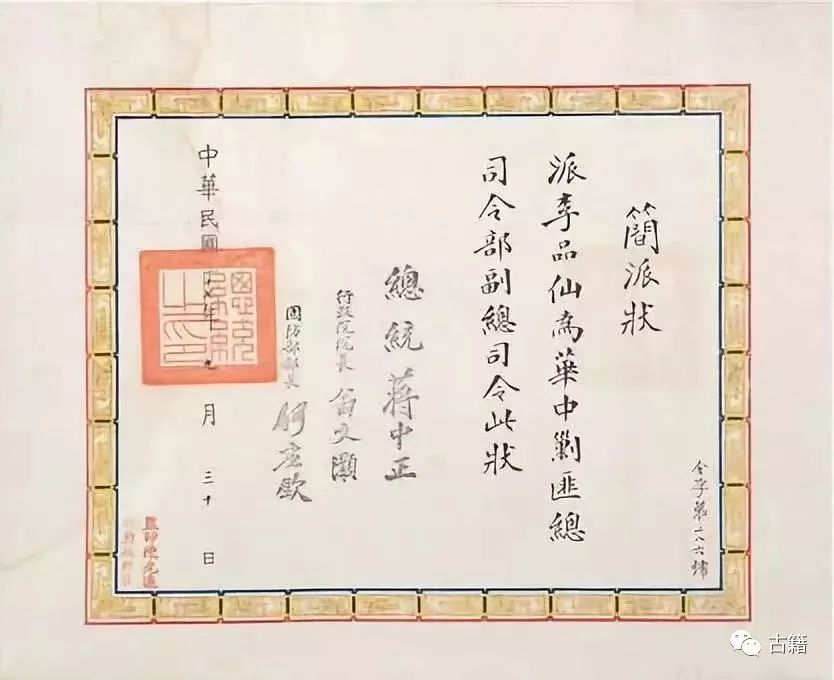 簡派狀
派李品仙為華中剿匪總
司令部副總司令此狀
總統 蔣中正
行政院院長 翁文灝
國防部部長 何應欽
中華民國 年九月三十日
古籍